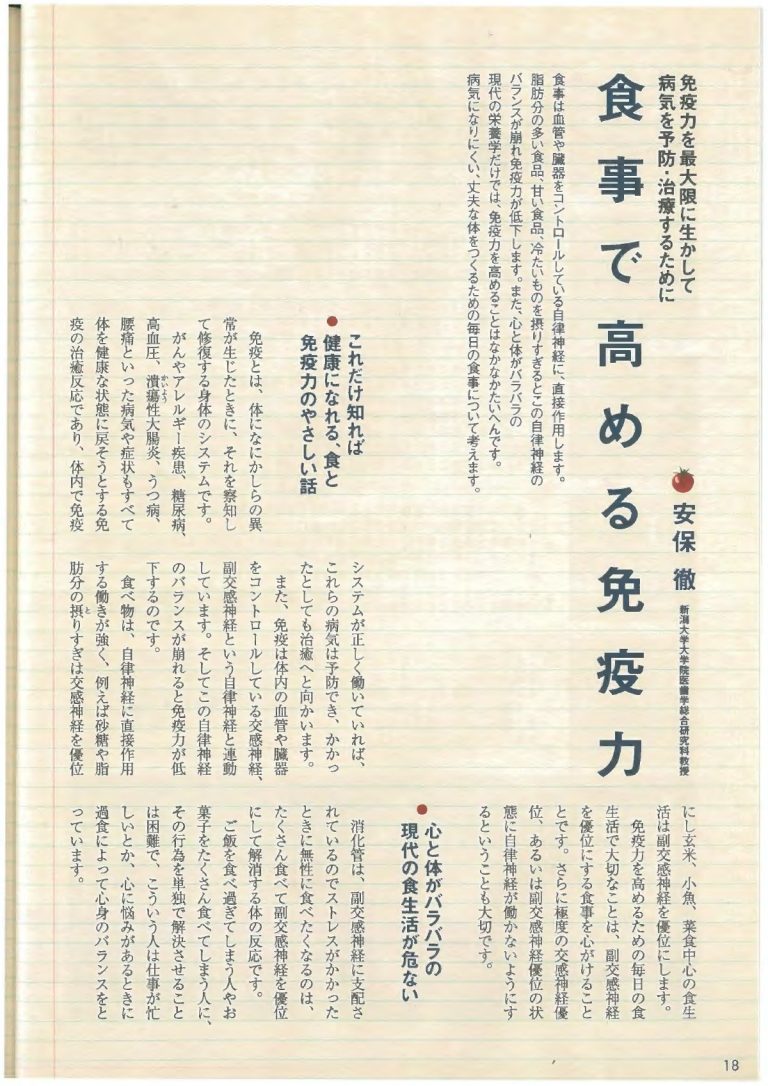 免疫力を最大限に生かして
病気を予防・治療するために
食事で高める免疫力
安保 徹
新潟大学大学院医歯学総合研究科教授
食事は血管や臓器をコントロールしている自律神経に、直接作用します。
脂肪分の多い食品、甘い食品、冷たいものを摂りすぎるとこの自律神経の
バランスが崩れ免疫力が低下します。また、心と体がバラバラの
現代の栄養学だけでは、免疫力を高めることはなかなかたいへんです。
病気になりにくい、丈夫な体をつくるための毎日の食事について考えます。
これだけ知れば
●健康になれる、食と
免疫力のやさしい話
免疫とは、体になにかしらの異
常が生じたときに、それを察知し
て修復する身体のシステムです。
がんやアレルギー疾患、糖尿病、
高血圧、潰瘍性大腸炎、うつ病、
かいよう
腰痛といった病気や症状もすべて
体を健康な状態に戻そうとする免
疫の治癒反応であり、体内で免疫
システムが正しく働いていれば、
これらの病気は予防でき、かかっ
たとしても治癒へと向かいます。
また、免疫は体内の血管や臓器
をコントロールしている交感神経、
副交感神経という自律神経と連動
しています。そしてこの自律神経
のバランスが崩れると免疫力が低
下するのです。
食べ物は、自律神経に直接作用
する働きが強く、例えば砂糖や脂
肪分の摂りすぎは交感神経を優位
と
にし玄米、小魚、菜食中心の食生
活は副交感神経を優位にします。
免疫力を高めるための毎日の食
生活で大切なことは、副交感神経
を優位にする食事を心がけること
とです。さらに極度の交感神経優
位、あるいは副交感神経優位の状
態に自律神経が働かないようにす
るということも大切です。
●心と体がバラバラの
現代の食生活が危ない
消化管は、副交感神経に支配さ
れているのでストレスがかかった
ときに無性に食べたくなるのは、
たくさん食べて副交感神経を優位
にして解消する体の反応です。
ご飯を食べ過ぎてしまう人やお
菓子をたくさん食べてしまう人に、
その行為を単独で解決させること
は困難で、こういう人は仕事が忙
しいとか、心に悩みがあるときに
過食によって心身のバランスをと
っています。
18